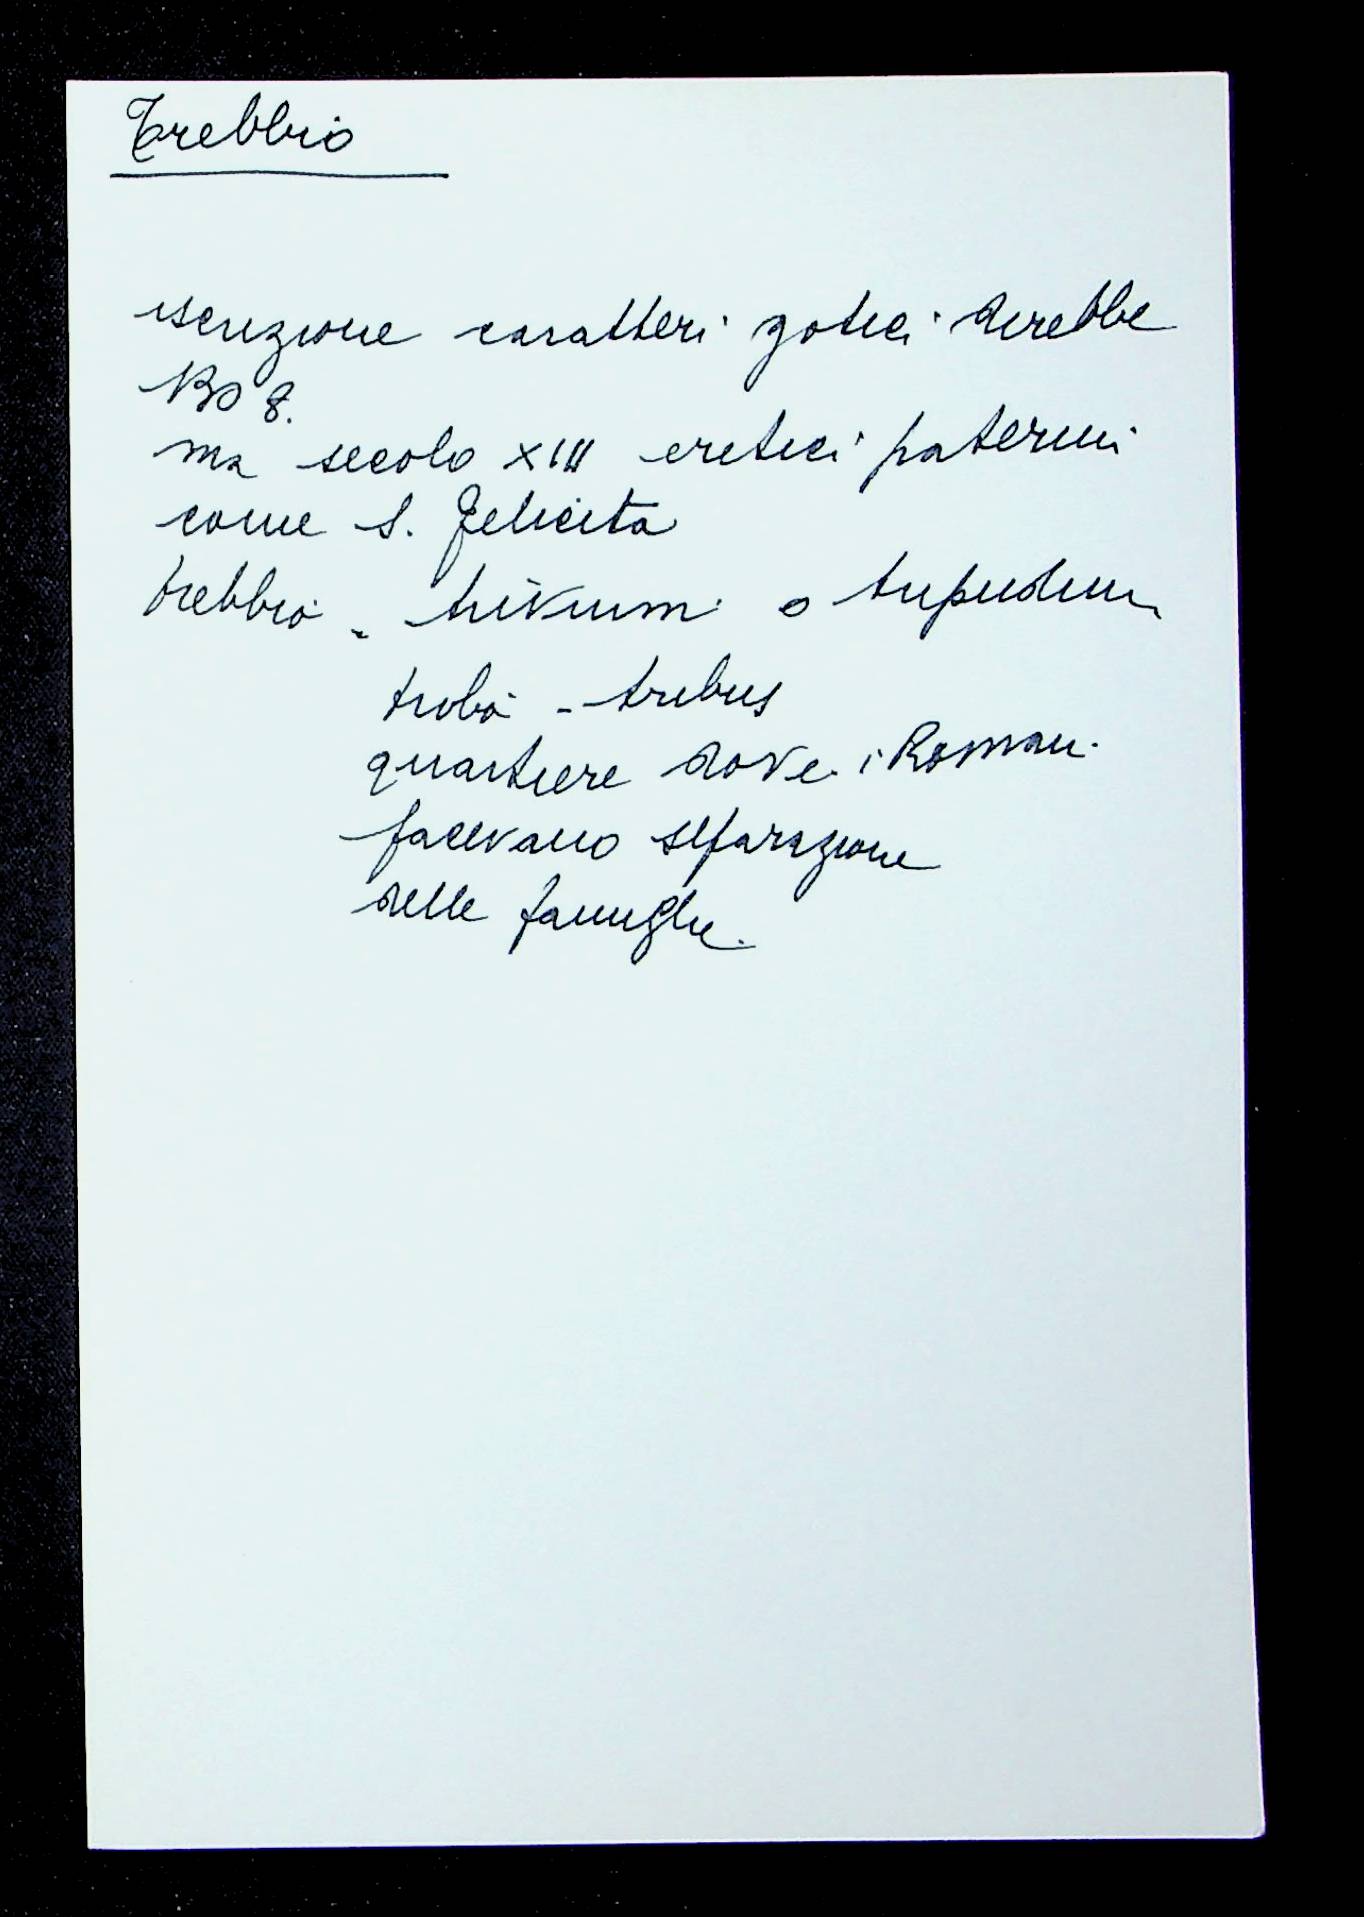 Trebbio
iscrizione caratteri gotici direbbe
1308.
ma secolo XIII eretici paterini
come S. Felicita
trebbio - trivium o tripudium
tribù - tribus
quartiere dove i Romani
facevano separazione
delle famiglie.